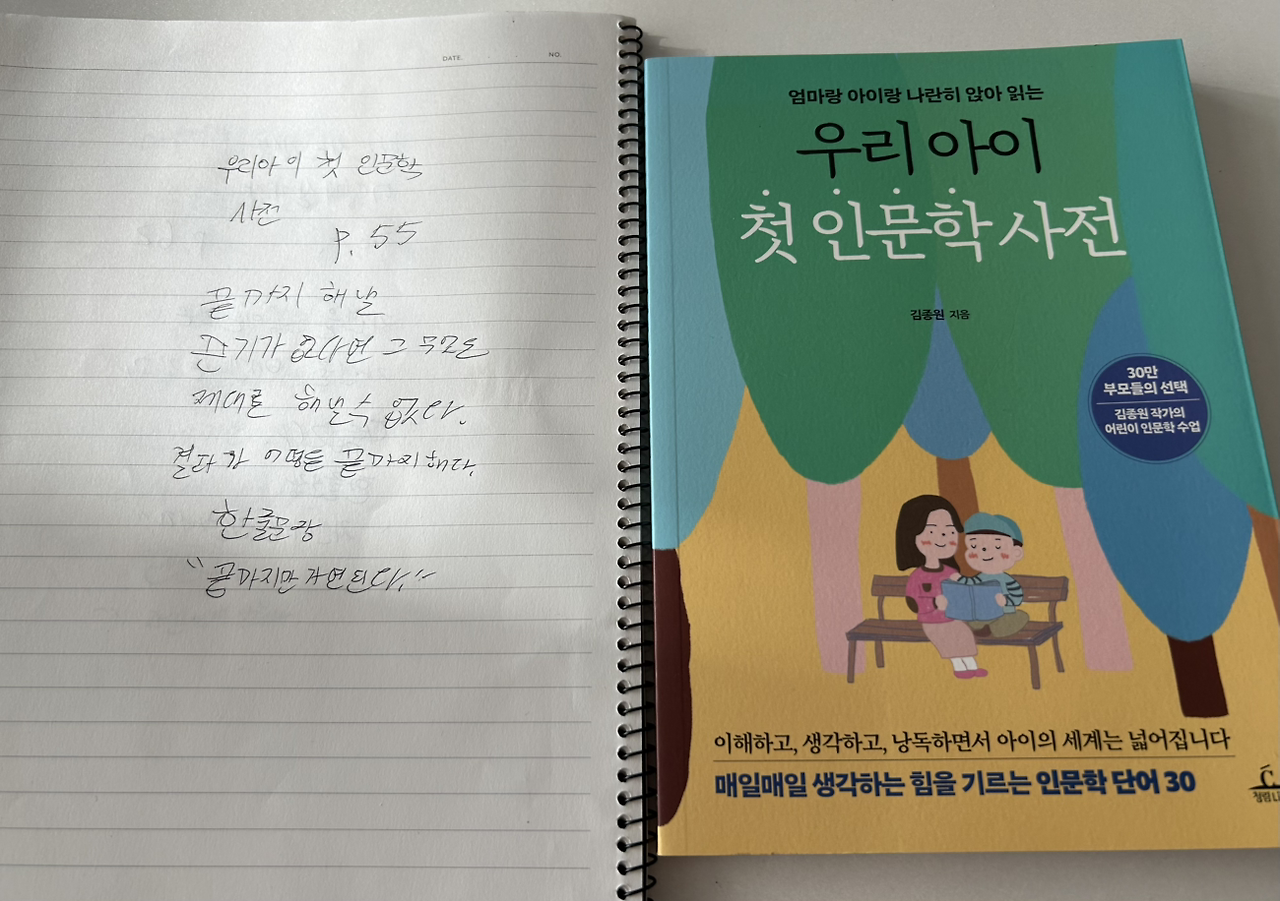 DATE.
NO.
우리아이 첫 인문학
사전
P. 55
끝까지 해낼
끈기가 없다면 그 무엇도
제대로 해낼수 없다.
결과가 어떻든 끝까지해라.
한줄문장
"끝까지만 가면된다."
엄마랑 아이랑 나란히 앉아 읽는
우리 아이
첫 인문학 사전
김종원 지음
30만
부모들의 선택
김종원 작가의
어린이 인문학 수업
이해하고, 생각하고, 낭독하면서 아이의 세계는 넓어집니다
매일매일 생각하는 힘을 기르는 인문학 단어 30